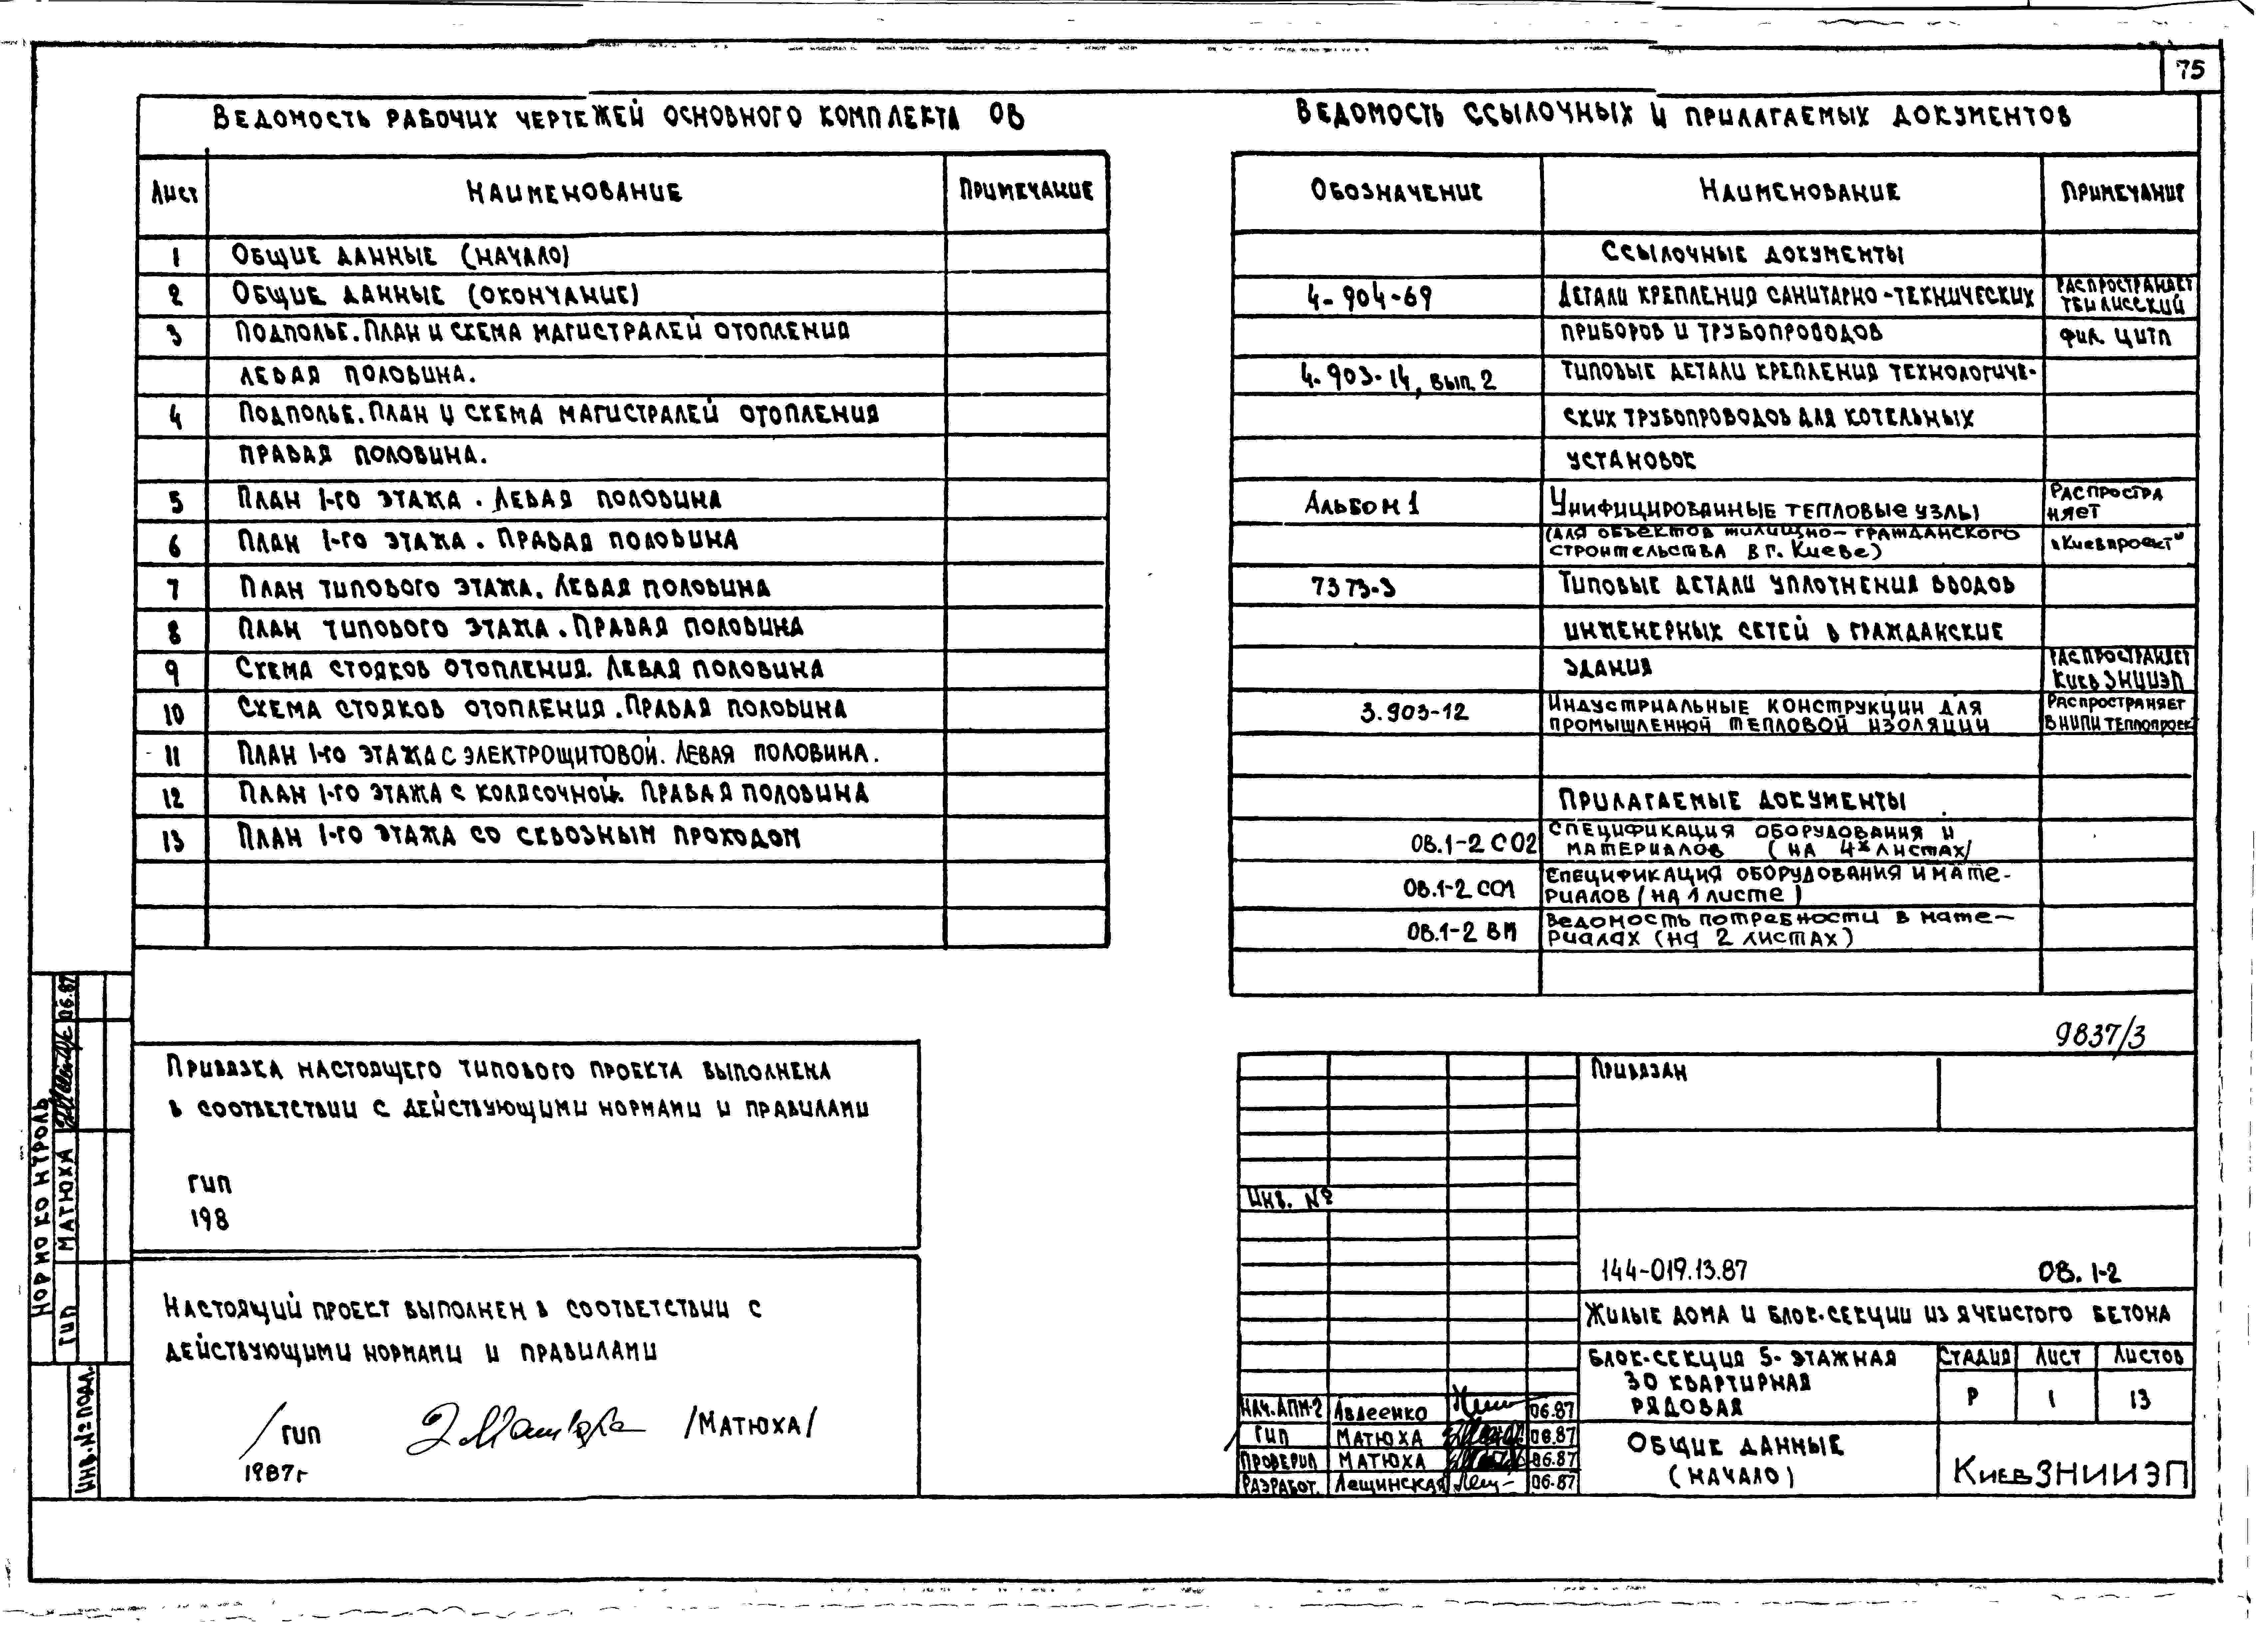 75
Ведомость рабочих чертежей основного комплекта ОВ
Лист Наименование Примечание
1 Общие данные (начало)
2 Общие данные (окончание)
3 Подполье. План и схема магистралей отопления
левая половина.
4 Подполье. План и схема магистралей отопления
правая половина.
5 План 1-го этажа. Левая половина
6 План 1-го этажа. Правая половина
7 План типового этажа. Левая половина
8 План типового этажа. Правая половина
9 Схема стояков отопления. Левая половина
10 Схема стояков отопления. Правая половина
11 План 1-го этажа с электрощитовой. Левая половина.
12 План 1-го этажа с колясочной. Правая половина
13 План 1-го этажа со сквозным проходом
Ведомость ссылочных и прилагаемых документов
Обозначение Наименование Примечание
Ссылочные документы
4-904-69 Детали крепления санитарно-технических Распространяет Тбилисский
приборов и трубопроводов фил. ЦИТП
4-903-14, вып. 2 Типовые детали крепления технологиче-
ских трубопроводов для котельных
установок
Альбом 1 Унифицированные тепловые узлы Распростра няет
(для объектов жилищно-гражданского
строительства в г. Киеве) "Киевпроект"
7373-3 Типовые детали уплотнения вводов
инженерных сетей в гражданские
здания Распространяет КиевЗНИИЭП
3.903-12 Индустриальные конструкции для Распространяет
промышленной тепловой изоляции ВНИПИ Теплопроект
Прилагаемые документы
ОВ.1-2 СО2 Спецификация оборудования и
материалов (на 4х листах/
ОВ.1-2 СО1 Спецификация оборудования и мате-
риалов (на 1 листе)
ОВ.1-2 ВМ Ведомость потребности в мате-
риалах (на 2 листах)
9837/3
Привязка настоящего типового проекта выполнена
в соответствии с действующими нормами и правилами
ГИП
198
Настоящий проект выполнен в соответствии с
действующими нормами и правилами
ГИП /Матюха/
1987г
Нормоконтроль
ГИП Матюха 06.87
Инв. № подл.
Привязан
Инв. №
144-019.13.87 ОВ. 1-2
Жилые дома и блок-секции из ячеистого бетона
Блок-секция 5-этажная
30 квартирная
рядовая
Стадия Лист Листов
Р 1 13
Нач. АПМ-2 Авдеенко 06.87
ГИП Матюха 06.87
Проверил Матюха 06.87
Разработ. Лещинская 06.87
Общие данные
(начало)
КиевЗНИИЭП